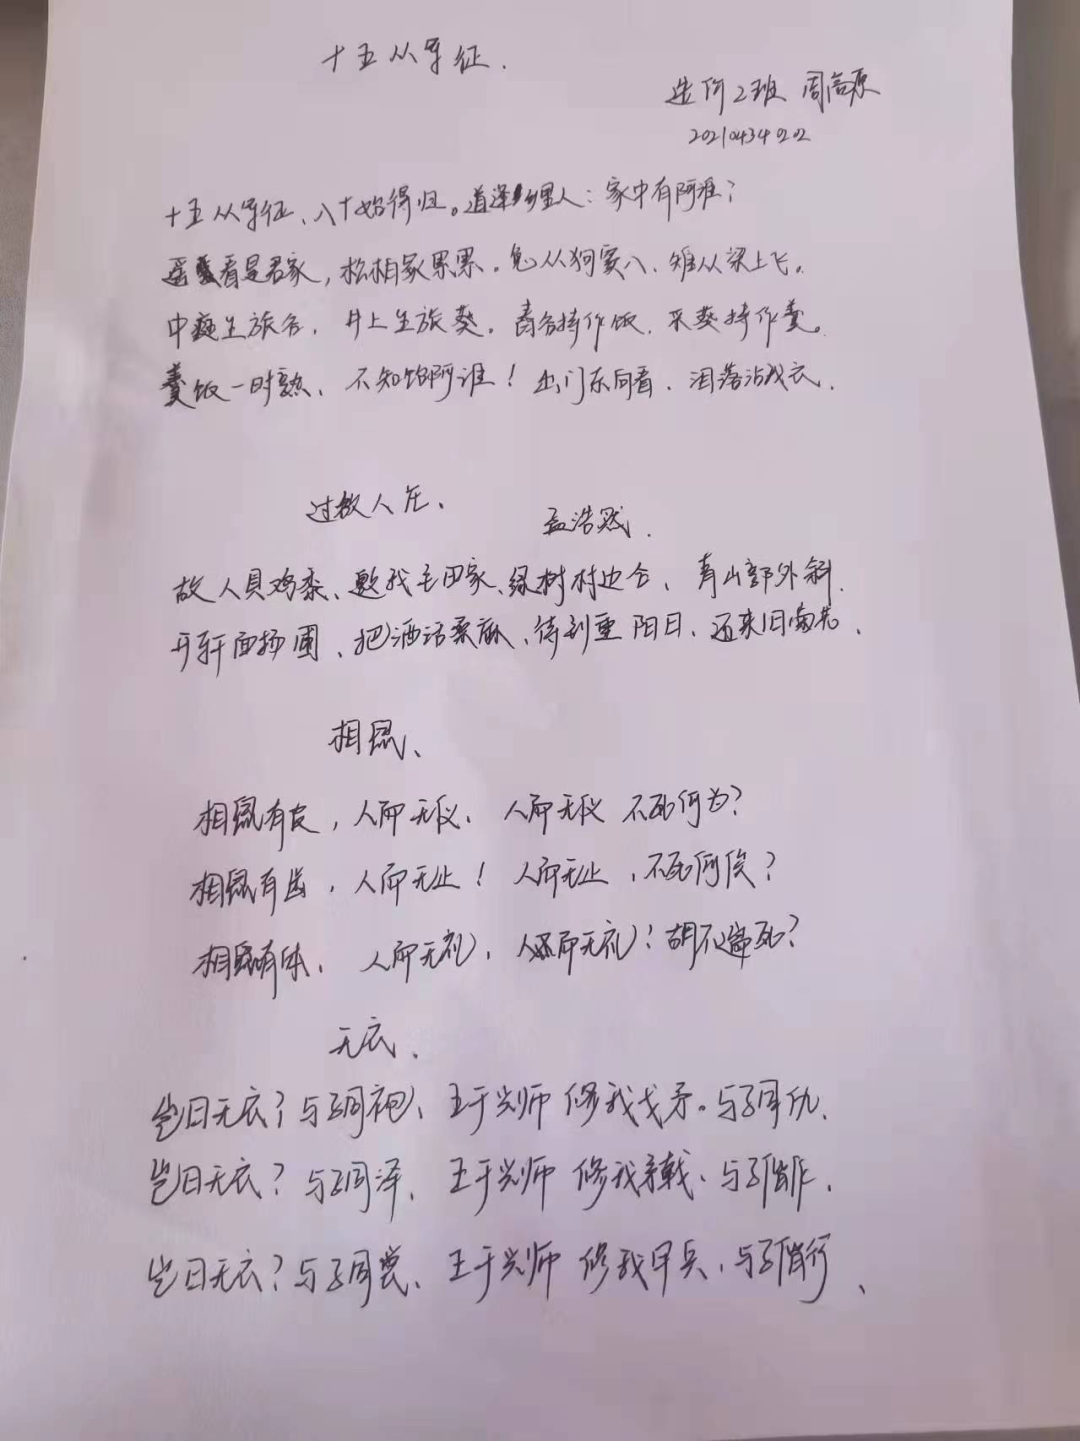 十五从军征.
造价2班 周高原
2021043402 02
十五从军征、八十始得归。道逢乡里人：家中有阿谁？
遥看是君家，松柏冢累累。兔从狗窦入、雉从梁上飞。
中庭生旅谷，井上生旅葵。舂谷持作饭，采葵持作羹。
羹饭一时熟、不知饴阿谁！出门东向看，泪落沾我衣.
过故人庄、
孟浩然.
故人具鸡黍、邀我至田家、绿树村边合、青山郭外斜.
开轩面场圃、把酒话桑麻、待到重阳日、还来旧菊花、
相鼠、
相鼠有皮，人而无仪、人而无仪 不死何为？
相鼠有齿，人而无止！人而无止，不死何俟？
相鼠有体、人而无礼、人而无礼？胡不遄死？
无衣、
岂曰无衣？与子同袍、王于兴师 修我戈矛。与子同仇、
岂曰无衣？与子同泽、王于兴师 修我矛戟、与子偕作、
岂曰无衣？与子同裳、王于兴师 修我甲兵、与子偕行、